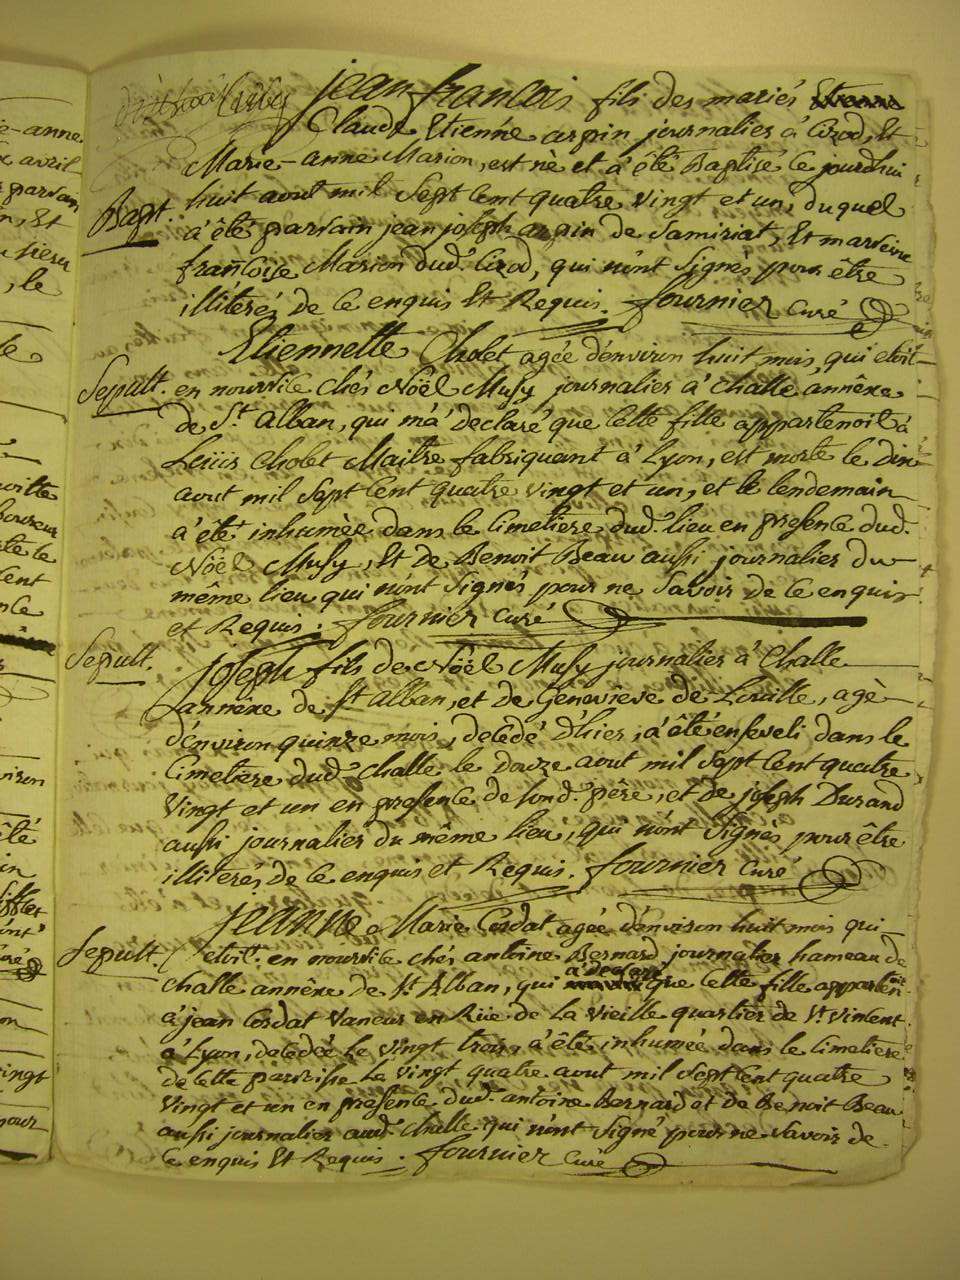 Jean francois fils des mariés
Claude Etienne arpin journalier à Cirod, Et
Marie-anne Marion, est né et à été Baptisé ce jourdhui
Bapt. huit aout mil Sept Cent quatre Vingt et un, duquel
a été parrain jean joseph arpin de Samiriat, Et marraine
francoise Marion dud. Cirod, qui n'ont Signés pour être
illiterés de ce enquis Et Requis. fournier Curé
Etiennette Cholet agée d'environ huit mois, qui etoit
Sepult. en nourrice chés Noël Musy journalier à challe annêxe
de St. alban, qui m'a declaré que Cette fille appartenoit à
Loüis Cholet Maitre fabriquant à Lyon, est morte le dix
aout mil Sept Cent quatre vingt et un, et le lendemain
à été inhumée dans le Cimetiere dud. lieu en presence dud.
Noël Musy, Et de Benoit Beau aussi journalier du
même lieu qui n'ont Signés pour ne Savoir de ce enquis
et Requis. fournier Curé
Sepult. Joseph fils de Noël Musy journalier à Challe
annêxe de St alban, et de Genevieve de Louille, agé
d'environ quinze mois, decedé d'hier, à été enseveli dans le
Cimetiere dud. challe le douze aout mil Sept Cent quatre
Vingt et un en presence de sond. père, et de joseph Durand
aussi journalier du même lieu, qui n'ont Signés pour être
illiterés de ce enquis et Requis. fournier Curé
Jeanne Marie Cordat agée d'environ huit mois qui
Sepult. etoit en nourrice chés antoine Bernard journalier hameau de
challe annêxe de St. Alban, qui a declaré que Cette fille appartenoit
à jean Cordat Vaneur en Rüe de La Vieille quartier de St. Vincent
à Lyon, decedée Le Vingt trois, à été inhumée dans le Cimetiere
de cette parroisse Le Vingt quatre aout mil Sept Cent quatre
Vingt et un en presence dud. antoine Bernard et de Benoit Beau
aussi journalier aud. challe qui n'ont Signé pour ne Savoir de
Ce enquis Et Requis. fournier Curé